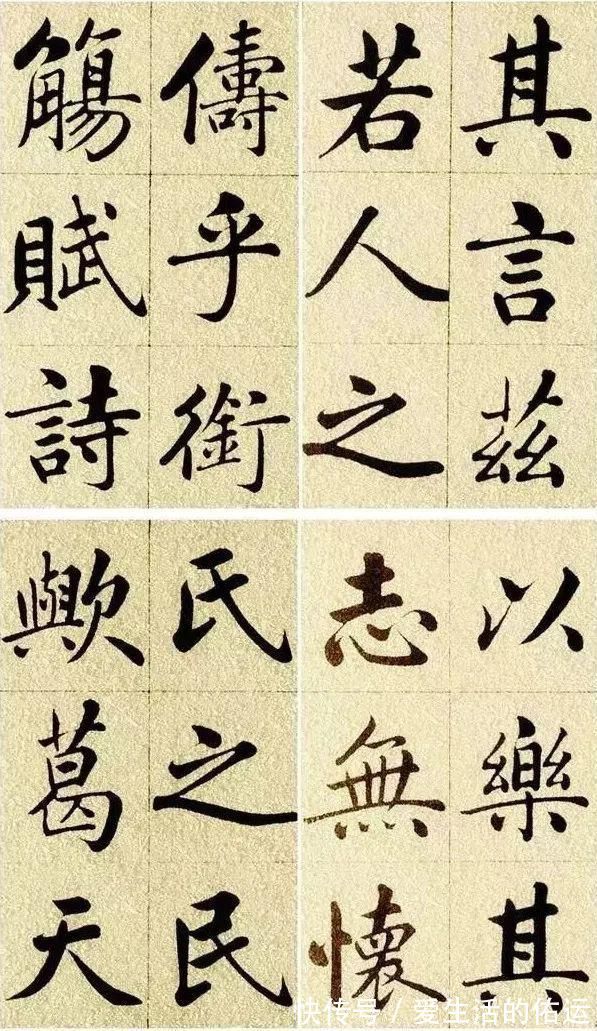 其言茲
若人之
儔乎銜
觴賦詩
以樂其
志無懷
氏之民
歟葛天
快传号 / 爱生活的佑运